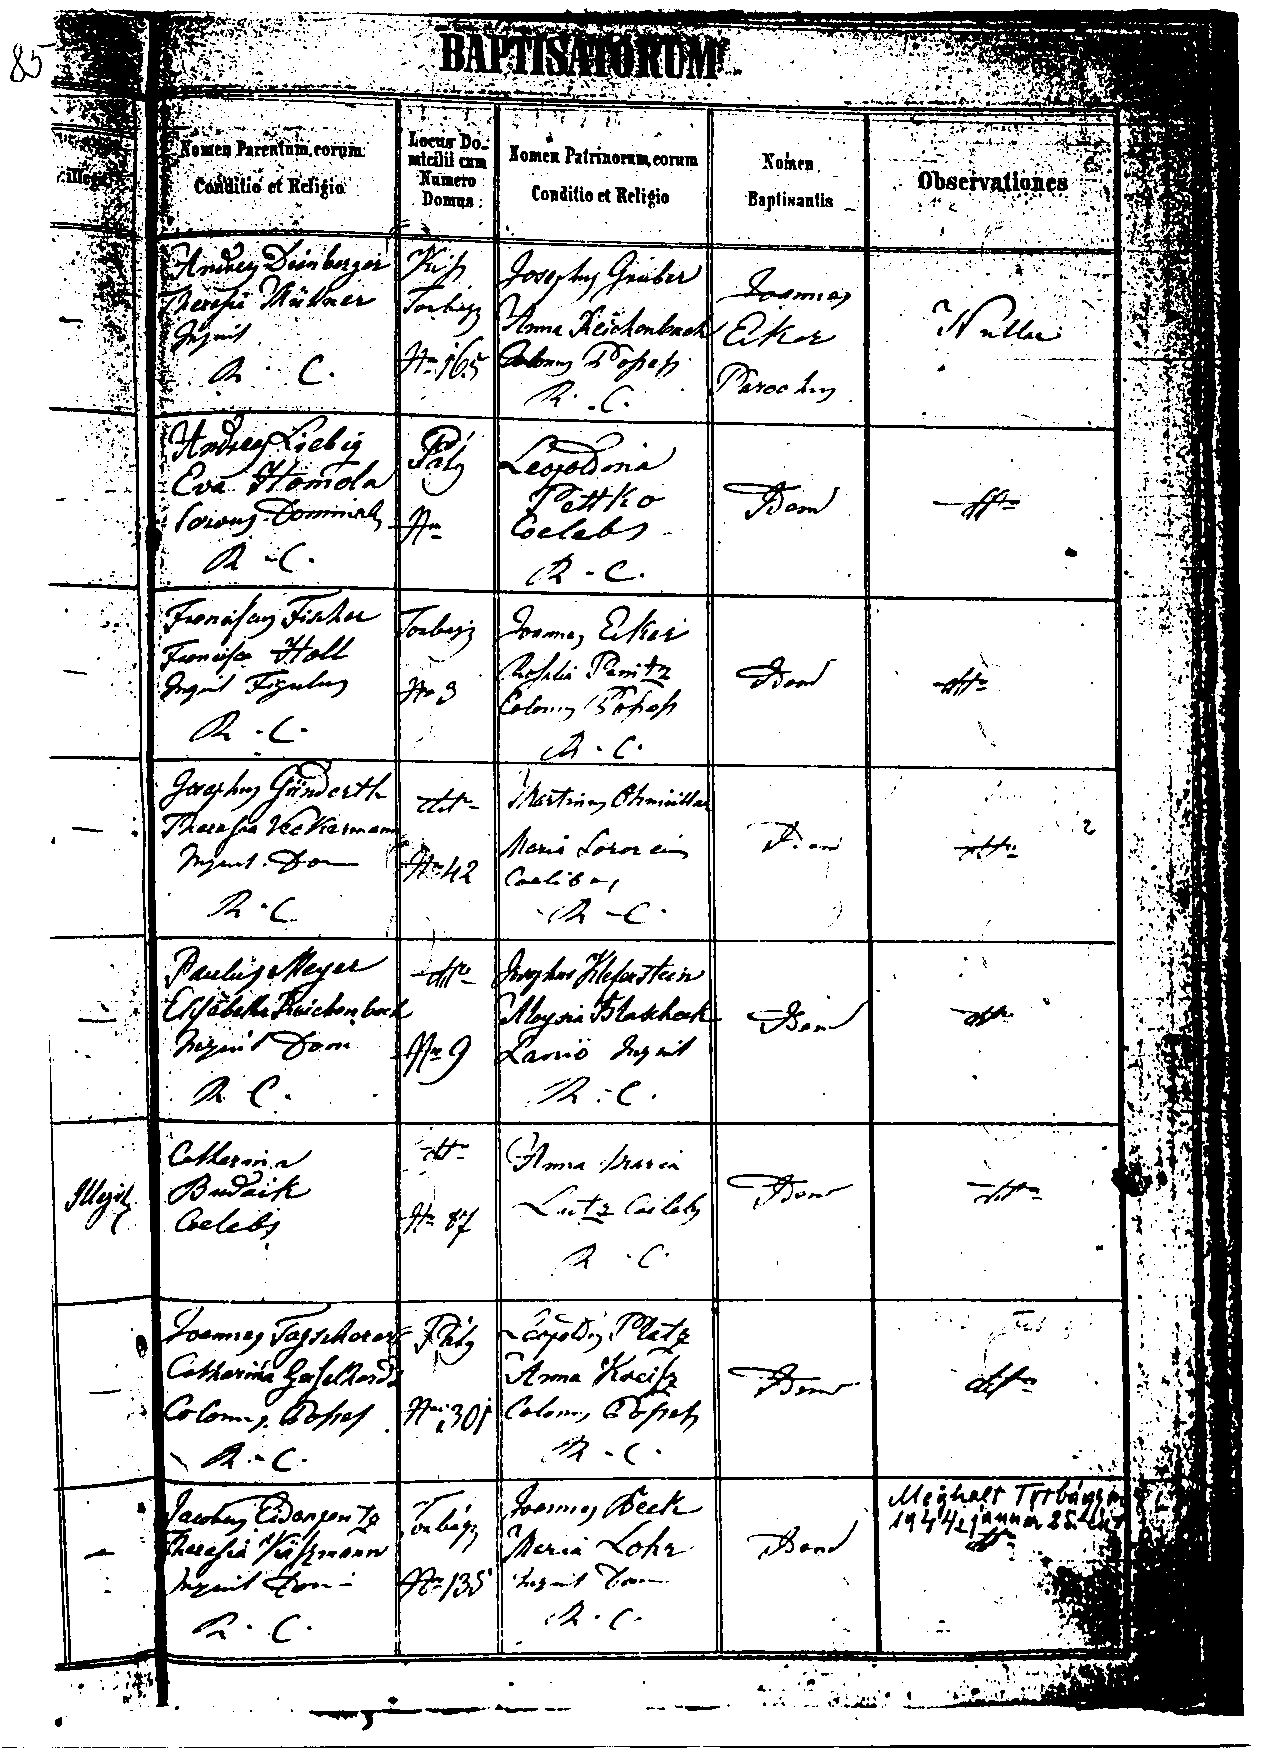 85
BAPTISATORUM
illegit.
Nomen Parentum, eorum
Conditio et Religio
Locus Do-
micilii cum
Numero
Domus
Nomen Patrinorum, eorum
Conditio et Religio
Nomen
Baptisantis
Observationes
Andreas Deinberger
Theresia Müllner
Inquil
R. C.
Kis
Torbágy
Nro 165
Josephus Gruber
Anna Reichenbach
Colonus
R. C.
Joannes
Eiker
Parochus
Nullae
Andreas Liebig
Eva Homola
Dominalis
R. C.
Páty
Nro
Leopoldina
Pettko
Coelebs
R. C.
Idem
dtto
Franciscus Fischer
Francisca Holl
Inquil Figulus
R. C.
Torbágy
Nro 3
Joannes Eiker
Rosalia
Colonus
R. C.
Idem
dtto
Josephus Günderth
Theresia Vekermann
Inquil Dom
R. C.
dtto
Nro 42
Martinus
Maria
Coelibes
R. C.
Idem
dtto
Paulus Mayer
Elisabetha Reichenbach
Inquil Dom
R. C.
dtto
Nro 9
Josephus Klieberstein
Aloysia Blascheck
Lanio Inquil
R. C.
Idem
dtto
Illegit
Catharina
Budaik
Coelebs
dtto
Nro 87
Anna Maria
Lutz Coelebs
R. C.
Idem
dtto
Joannes Tagscherer
Catharina
Colonus
R. C.
Páty
Nro 301
Leopoldus Platz
Anna Kreisz
Colonus
R. C.
Idem
dtto
Jacobus
Theresia Käszmann
Inquil Dom
R. C.
Torbágy
Nro 135
Joannes Beck
Maria Lohr
Inquil Dom
R. C.
Idem
Meghalt Torbágyon
1944 január 25
dtto